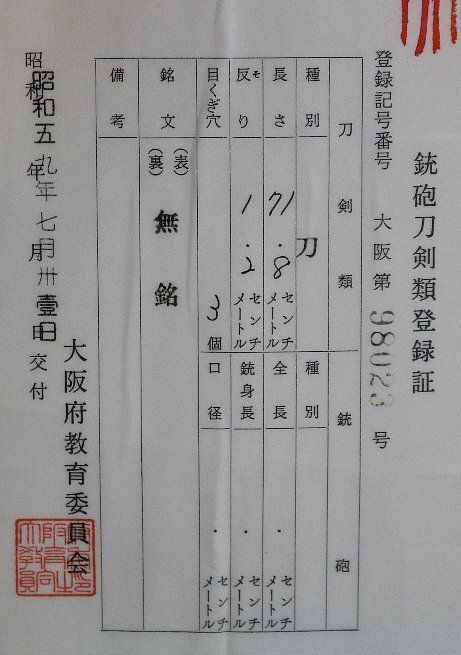 銃砲刀剣類登録証
登録記号番号 大阪第 98023 号
刀剣類 銃砲
種別 刀 種別
長さ 71.8 センチメートル 全長 . センチメートル
反り ソ 1.2 センチメートル 銃身長 . センチメートル
目くぎ穴 3個 口径 . センチメートル
銘文 (表) 無銘
(裏)
備考
昭和五九年七月卅壹日交付
大阪府教育委員会